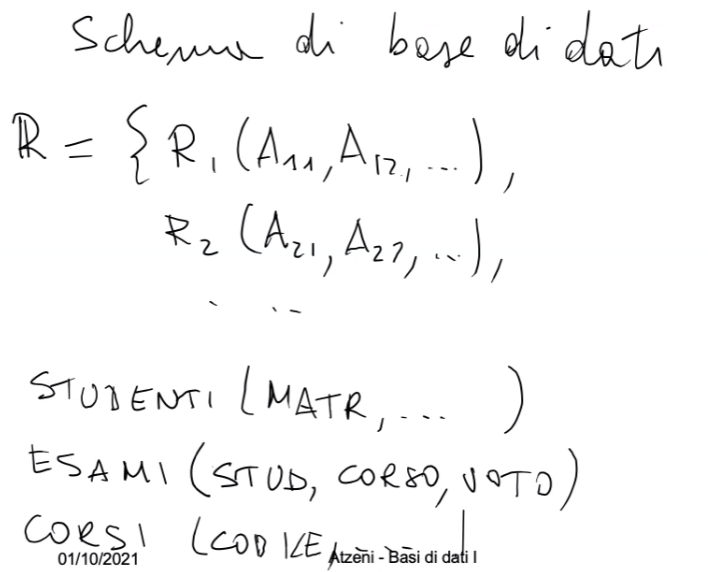 Schema di base di dati
R = { R1 (A11, A12, ...),
R2 (A21, A22, ...),
. . .
STUDENTI (MATR, ... )
ESAMI (STUD, CORSO, VOTO)
CORSI (CODICE, ... )
01/10/2021 Atzeni - Basi di dati I